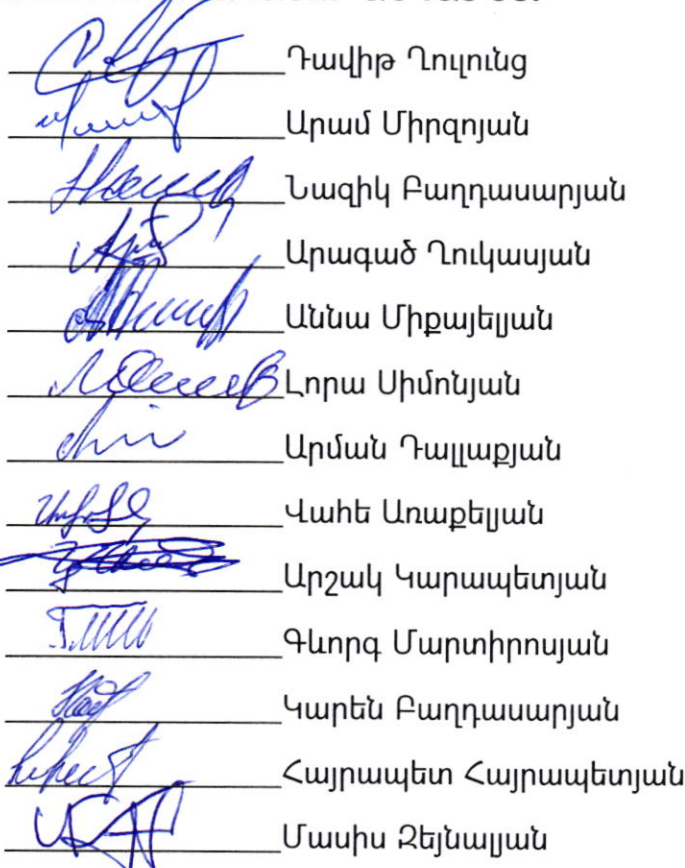 Դավիթ Ղուլունց
Արամ Միրզոյան
Նազիկ Բաղդասարյան
Արագած Ղուկասյան
Աննա Միքայելյան
Լորա Սիմոնյան
Արման Դալլաքյան
Վահե Առաքելյան
Արշակ Կարապետյան
Գևորգ Մարտիրոսյան
Կարեն Բաղդասարյան
Հայրապետ Հայրապետյան
Մասիս Զեյնալյան